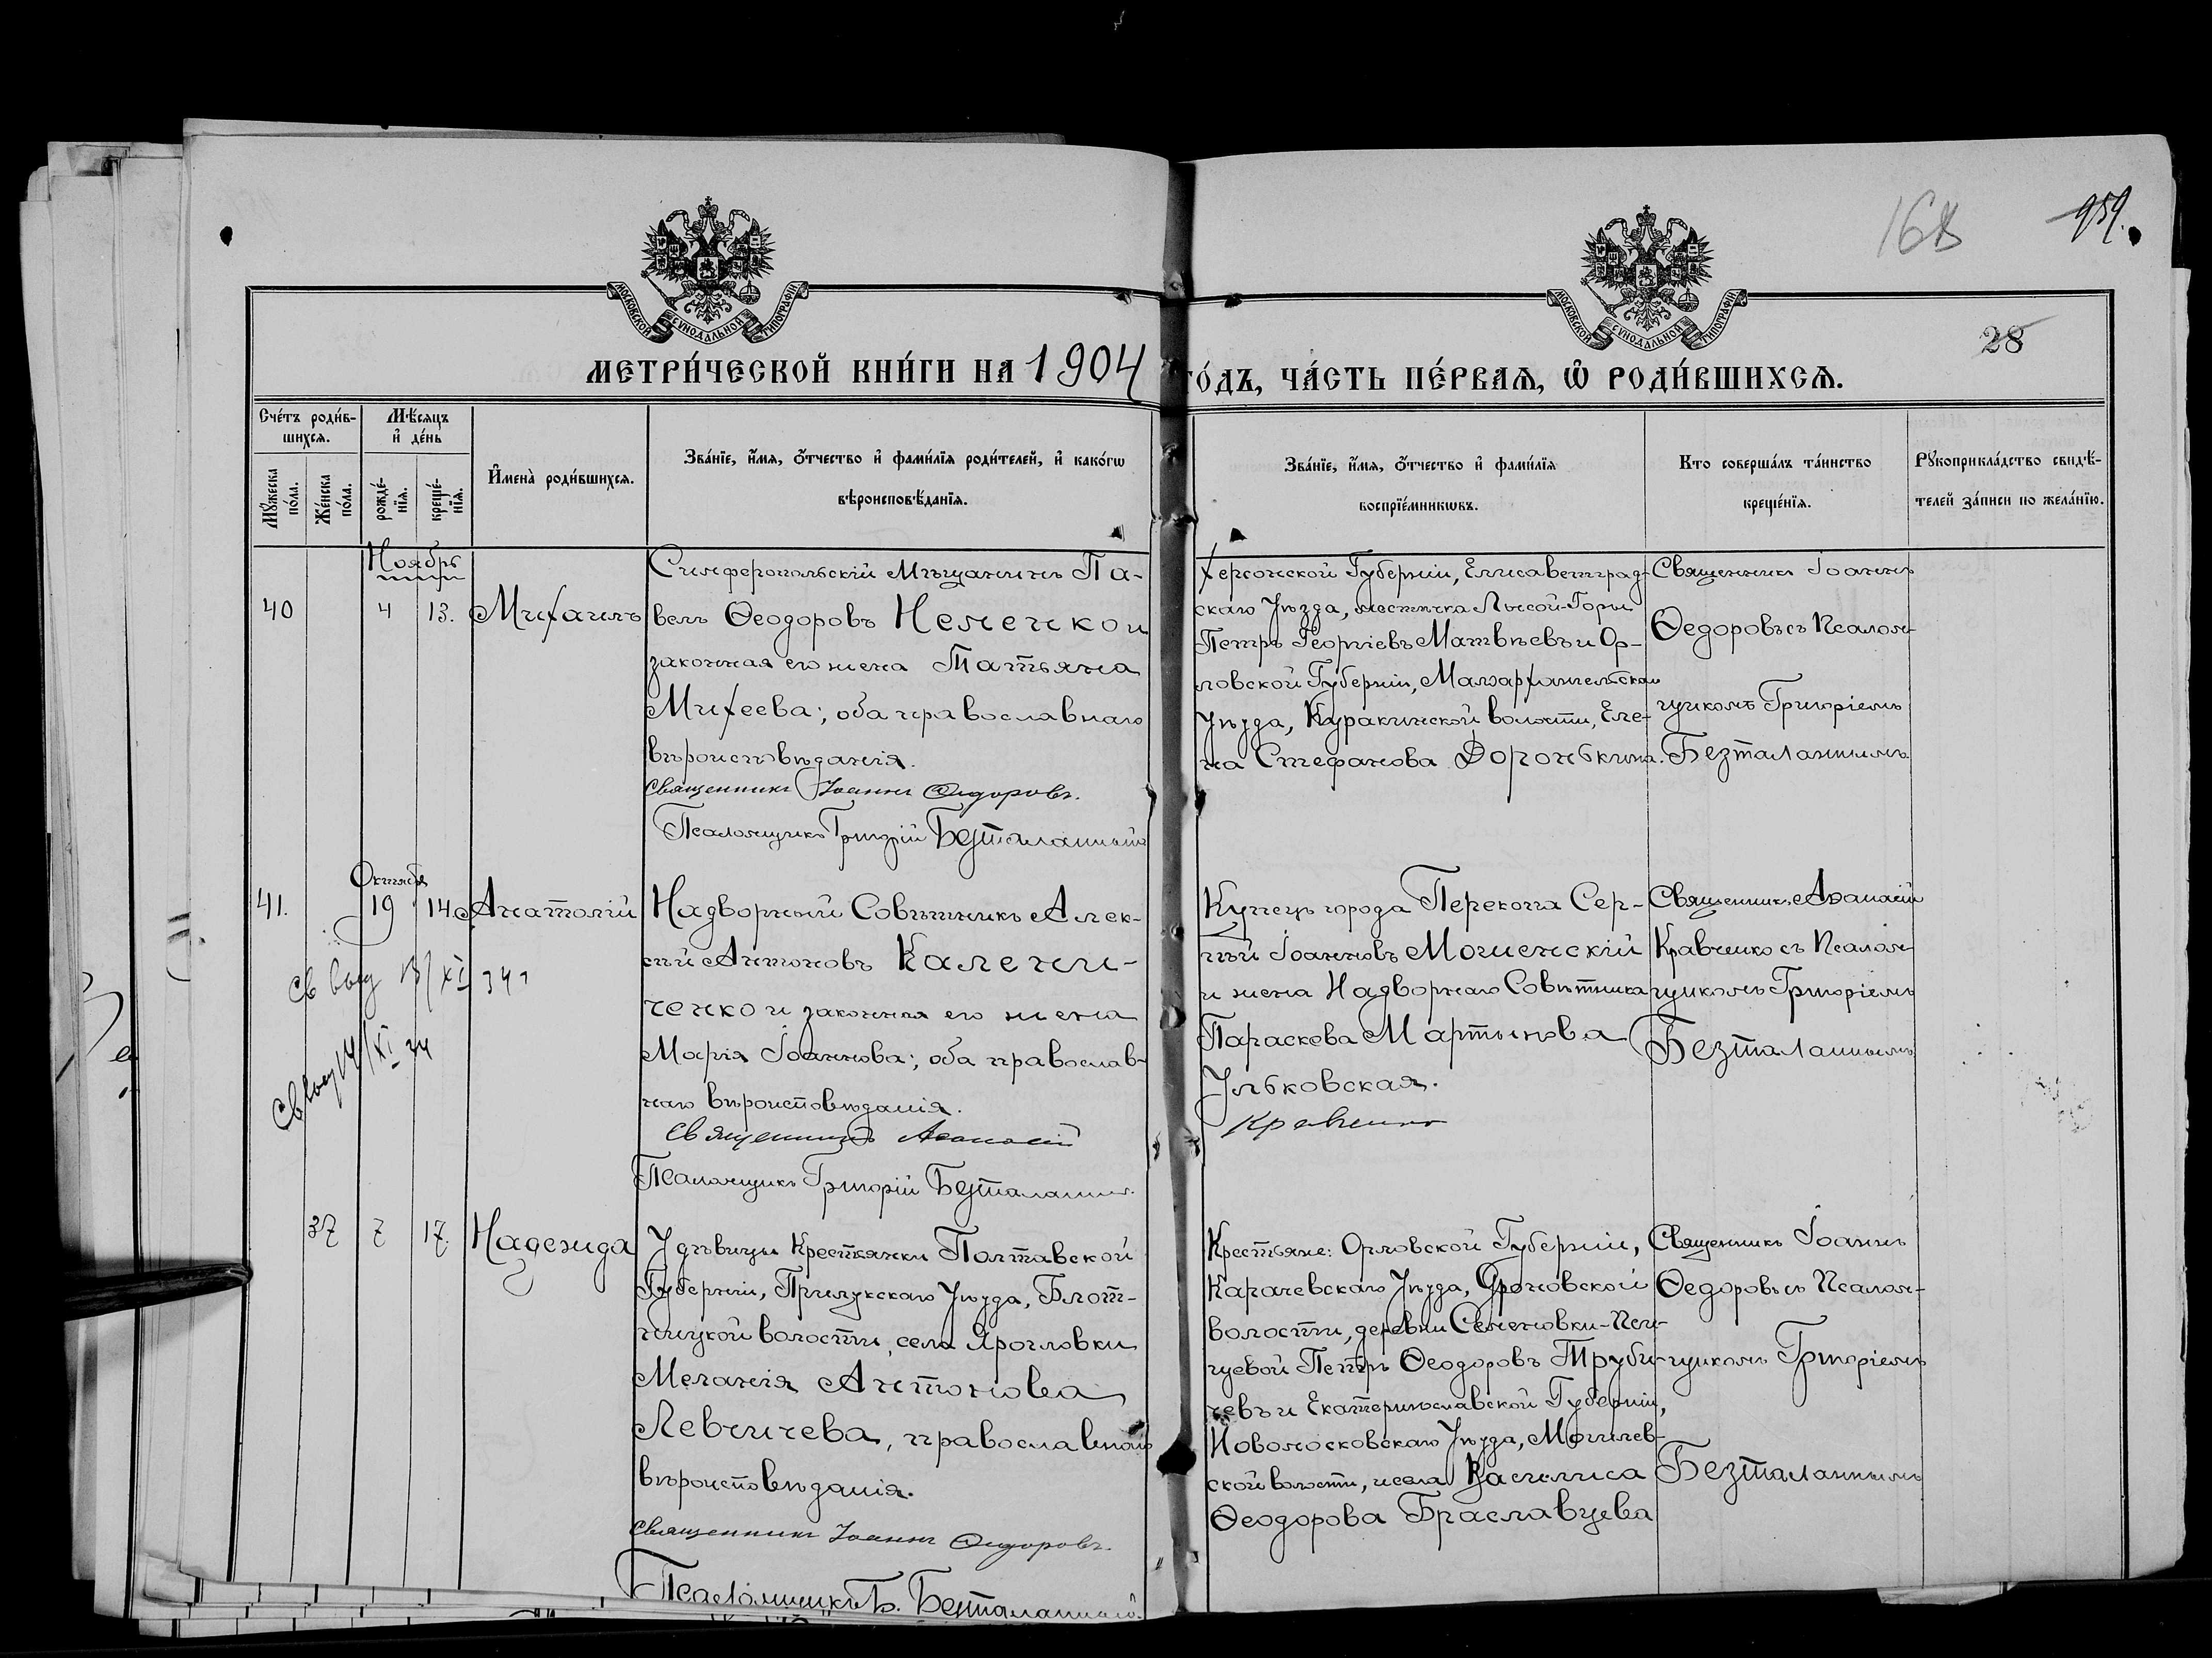 168
959.
МОСКОВСКОЙ СѴНОДАЛЬНОЙ ТИПОГРАФІИ
МОСКОВСКОЙ СѴНОДАЛЬНОЙ ТИПОГРАФІИ
28
МЕТРИ́ЧЕСКОЙ КНИ́ГИ НА 1904 ГО́ДЪ, ЧА́СТЬ ПЕ́РВАѦ, Ѡ҆ РОДИ́ВШИХСѦ.
Сче́тъ роди́в-
шихсѧ.
Мꙋ́жеска по́ла.
Же́нска по́ла.
Мѣ́сяцъ
и҆ де́нь
рожде́-
нїѧ.
креще́-
нїѧ.
И҆мена̀ роди́вшихсѧ.
Зва́нїе, и҆́мѧ, ѻ҆́тчество и҆ фами́лїѧ роди́телей, и҆ како́гѡ
вѣроисповѣ́данїѧ.
Зва́нїе, и҆́мѧ, ѻ҆́тчество и҆ фами́лїѧ
воспрїе́мникѡвъ.
Кто соверша́лъ та́инство
креще́нїѧ.
Рꙋкоприкла́дство свидѣ́-
телей за́писи по жела́нїю.
Ноябрь
40
4
13.
Михаилъ
Симферопольскій Мѣщанинъ Па-
велъ Ѳеодоровъ Неменко и
законная его жена Татьяна
Михеева; оба православнаго
вѣроисповѣданія.
Священникъ Іоаннъ Ѳедоровъ.
Псаломщикъ Григорій Безталанный
Херсонской Губерніи, Елисаветград-
скаго Уѣзда, местечка Лысой-Горы
Петръ Георгіевъ Матвѣевъ и Ор-
ловской Губерніи, Малоархангельскаго
Уѣзда, Куракинской волости, Еле-
на Стефанова Доронькина.
Священникъ Іоаннъ
Ѳедоровъ съ Псалом-
щикомъ Григоріемъ
Безталаннымъ
Октября
41.
19
14.
Анатолій
Надворный Совѣтникъ Алек-
сѣй Антоновъ Калени-
ченко и законная его жена
Марія Іоаннова; оба православ-
наго вѣроисповѣданія.
Священникъ Аѳанасій
Кравченко
Псаломщикъ Григорій Безталанный.
Св выд 13/XI 34 г
Св выд 14/XI 34
Купецъ города Перекопа Сер-
гѣй Іоанновъ Мошенскій
и жена Надворнаго Совѣтника
Параскева Мартынова
Ульковская.
Священникъ Аѳанасій
Кравченко съ Псалом-
щикомъ Григоріемъ
Безталаннымъ
37
7
17.
Надежда
Удѣвицы Крестьянки Полтавской
Губерніи, Прилукскаго Уѣзда,
волости, села
Меланія Антонова
Левчичева, православнаго
вѣроисповѣданія.
Священникъ Іоаннъ Ѳедоровъ.
Псаломщикъ Г. Безталанный.
Крестьяне: Орловской Губерніи,
Карачевскаго Уѣзда, Дроновской
волости, деревни Семеновки-
Петръ Ѳеодоровъ Труби-
чевъ и Екатеринославской Губерніи,
Новомосковскаго Уѣзда, Могилев-
ской волости, и села Василиса
Ѳеодорова Браславцева
Священникъ Іоаннъ
Ѳедоровъ съ Псалом-
щикомъ Григоріемъ
Безталаннымъ